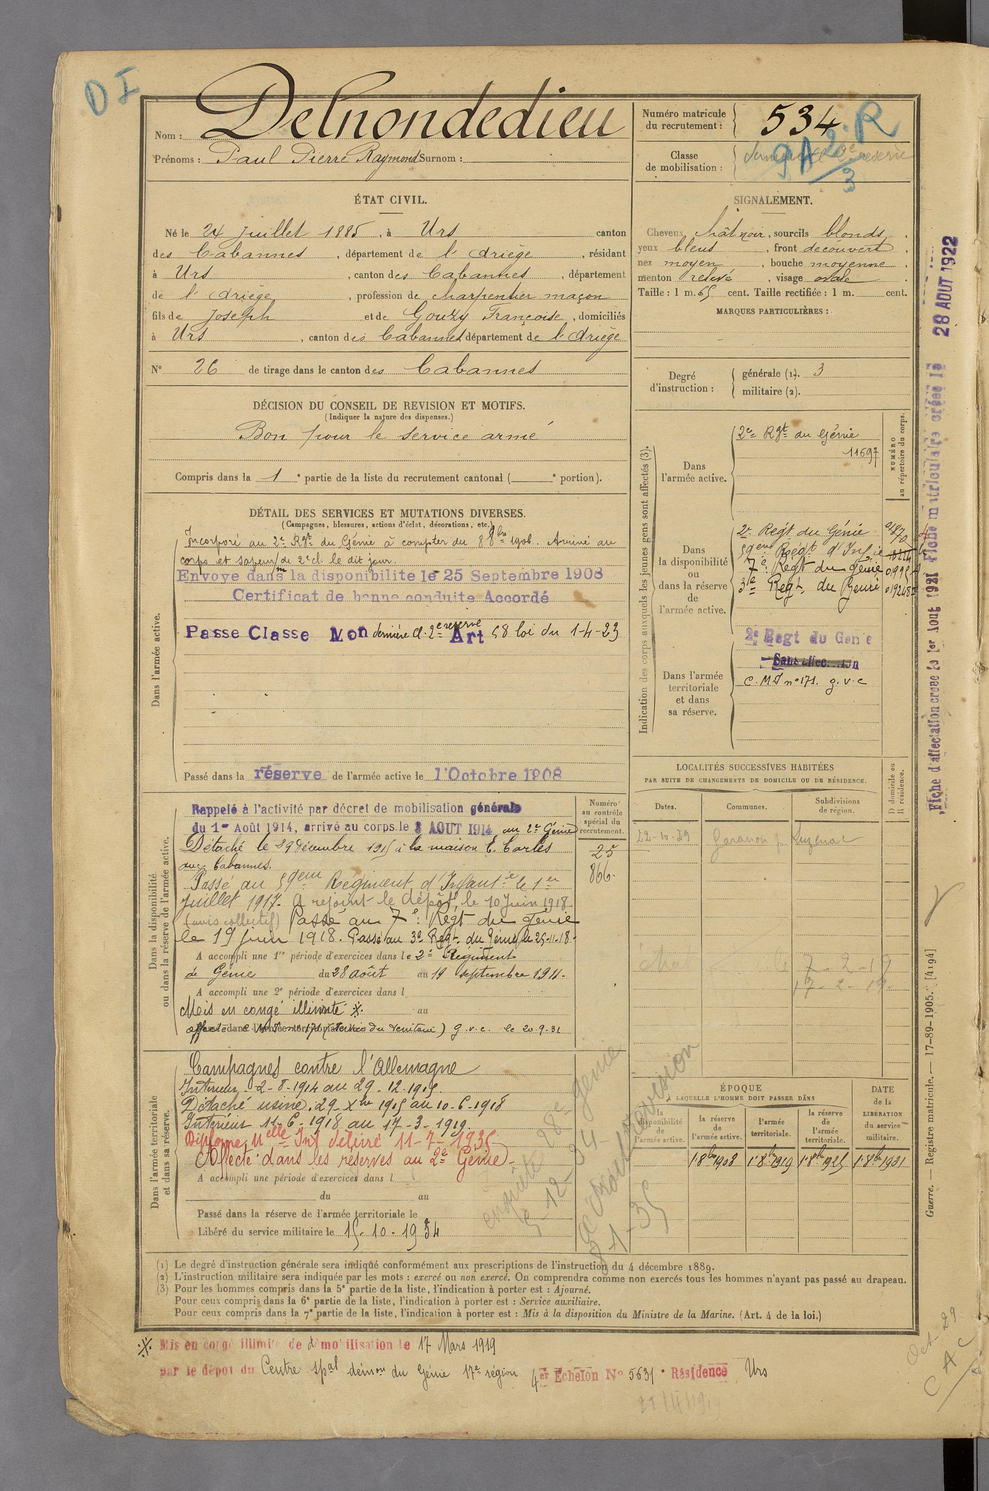 D I
Nom : Delnondedieu
Prénoms : Paul Pierre Raymond Surnom :
Numéro matricule du recrutement : 534
Classe de mobilisation : 2e réserve
9A 2e R
3
ÉTAT CIVIL.
Né le 24 juillet 1885, à Urs canton
des Cabannes, département de l'Ariège, résidant
à Urs, canton des Cabannes, département
de l'Ariège, profession de charpentier maçon
fils de Joseph et de Gouzy Françoise, domiciliés
à Urs, canton des Cabannes département de l'Ariège
N° 26 de tirage dans le canton des Cabannes
DÉCISION DU CONSEIL DE REVISION ET MOTIFS.
(Indiquer la nature des dispenses.)
Bon pour le service armé
Compris dans la 1e partie de la liste du recrutement cantonal ( e portion).
SIGNALEMENT.
Cheveux chât noir, sourcils blonds,
yeux bleus, front découvert,
nez moyen, bouche moyenne,
menton relevé, visage ovale
Taille : 1 m. 65 cent. Taille rectifiée : 1 m. cent.
MARQUES PARTICULIÈRES :
Degré d'instruction :
générale (1). 3
militaire (2).
DÉTAIL DES SERVICES ET MUTATIONS DIVERSES.
(Campagnes, blessures, actions d'éclat, décorations, etc.)
Dans l'armée active.
Incorporé au 2e Rgt du Génie à compter du 8 8bre 1906. Arrivé au
corps et sapeur de 2e cl. le dit jour.
Envoyé dans la disponibilité le 25 Septembre 1908
Certificat de bonne conduite Accordé
Passé Classe Mon dernière cl. 2e réserve Art 58 loi du 1-4-23
Passé dans la réserve de l'armée active le 1 Octobre 1908
Dans la disponibilité ou dans la réserve de l'armée active.
Rappelé à l'activité par décret de mobilisation générale
du 1er Août 1914, arrivé au corps le 3 AOUT 1914 au 2e Génie
Détaché le 29 décembre 1915 à la maison E. Carles
aux Cabannes.
Passé au 59eme Régiment d'Infant.ie le 1er
juillet 1917. A rejoint le dépôt, le 10 juin 1918.
(avis collectif) Passé au 7e Regt du Génie
le 19 juin 1918. Passé au 3e Regt. du Génie le 25-11-18.
A accompli une 1re période d'exercices dans le 2e Régiment
de Génie du 28 août au 19 septembre 1911.
A accompli une 2e période d'exercices dans l
Mis en congé illimité ※. au
g.v.c. le 20-9-31
Numéro au contrôle spécial du recrutement.
25
866.
Dans l'armée territoriale et dans sa réserve.
Campagnes contre l'Allemagne
Intérieur. 2-8-1914 au 29-12-1915
Détaché usine. 29 Xbre 1915 au 10-6-1918
Intérieur 11-6-1918 au 17-3-1919.
Diplôme Melle Inf délivré 11-7-1935
Affecté dans les réserves au 2e Génie
A accompli une période d'exercices dans l
du au
Passé dans la réserve de l'armée territoriale le
Libéré du service militaire le 15-10-1934
Indication des corps auxquels les jeunes gens sont affectés (3).
NUMÉRO au répertoire du corps.
Dans l'armée active.
2e Rgt du Génie
11697
Dans la disponibilité ou dans la réserve de l'armée active.
2e Regt du Génie
59eme Regt d'Inf.ie
7e Regt du Génie
3e Regt. du Génie
Dans l'armée territoriale et dans sa réserve.
2e Regt du Genie
C.M.I n° 171. g.v.c
LOCALITÉS SUCCESSIVES HABITÉES
PAR SUITE DE CHANGEMENTS DE DOMICILE OU DE RÉSIDENCE.
Dates. Communes. Subdivisions de région. D domicile ou R résidence.
22-10-39 Garanou p. Luzenac
7-2-19
17-2-19.
ÉPOQUE
À LAQUELLE L'HOMME DOIT PASSER DANS
la disponibilité de l'armée active. la réserve de l'armée active. l'armée territoriale. la réserve de l'armée territoriale.
DATE de la LIBÉRATION du service militaire.
1 8bre 1908 1 8bre 1919 1 8bre 1925 1 8bre 1931
28e génie
révision
1-35
(1) Le degré d'instruction générale sera indiqué conformément aux prescriptions de l'instruction du 4 décembre 1889.
(2) L'instruction militaire sera indiquée par les mots : exercé ou non exercé. On comprendra comme non exercés tous les hommes n'ayant pas passé au drapeau.
(3) Pour les hommes compris dans la 5e partie de la liste, l'indication à porter est : Ajourné.
Pour ceux compris dans la 6e partie de la liste, l'indication à porter est : Service auxiliaire.
Pour ceux compris dans la 7e partie de la liste, l'indication à porter est : Mis à la disposition du Ministre de la Marine. (Art. 4 de la loi.)
※. Mis en congé illimité de démobilisation le 17 Mars 1919
par le dépôt du Centre spal démon du Génie 17e région 4er Echelon N° 5631 • Résidence Urs
Fiche d'affectation créée le 1er Aout 1921 Fiche matriculaire créée le 28 AOUT 1922
Guerre. — Registre matricule. — 17-89-1905. [4194]
Oct. 29
C A C